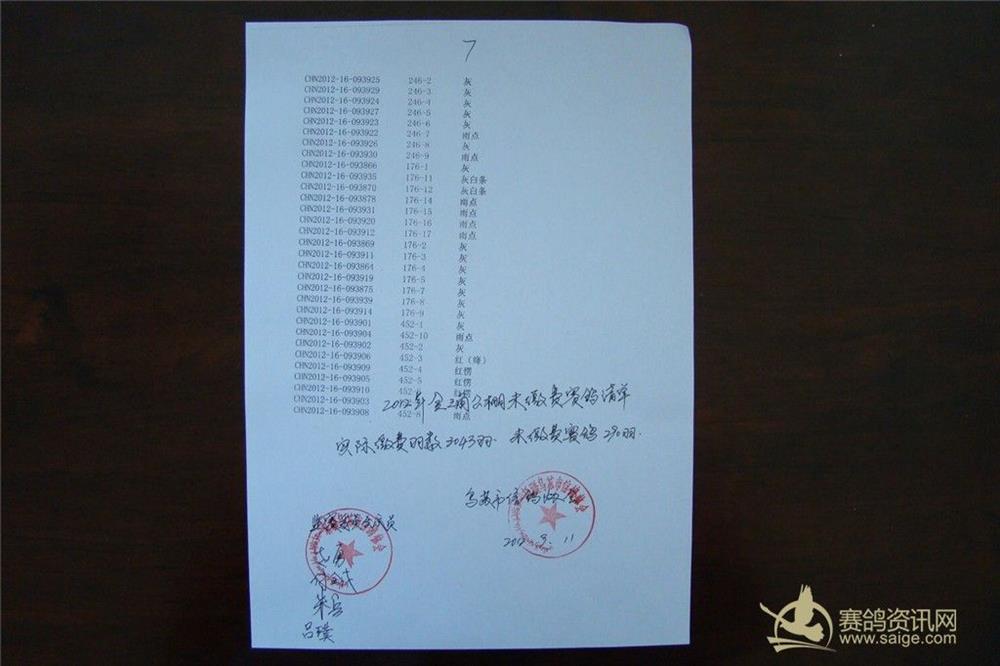 7
CHN2012-16-093925 246-2 灰
CHN2012-16-093929 246-3 灰
CHN2012-16-093924 246-4 灰
CHN2012-16-093927 246-5 灰
CHN2012-16-093923 246-6 灰
CHN2012-16-093922 246-7 雨点
CHN2012-16-093926 246-8 灰
CHN2012-16-093930 246-9 雨点
CHN2012-16-093866 176-1 灰
CHN2012-16-093935 176-11 灰白条
CHN2012-16-093870 176-12 灰白条
CHN2012-16-093878 176-14 雨点
CHN2012-16-093931 176-15 雨点
CHN2012-16-093920 176-16 雨点
CHN2012-16-093912 176-17 雨点
CHN2012-16-093869 176-2 灰
CHN2012-16-093911 176-3 灰
CHN2012-16-093864 176-4 灰
CHN2012-16-093919 176-5 灰
CHN2012-16-093875 176-7 灰
CHN2012-16-093939 176-8 灰
CHN2012-16-093914 176-9 灰
CHN2012-16-093901 452-1 灰
CHN2012-16-093904 452-10 雨点
CHN2012-16-093902 452-2 灰
CHN2012-16-093906 452-3 红（绛）
CHN2012-16-093909 452-4 红楞
CHN2012-16-093905 452-5 红楞
CHN2012-16-093910 452- 红楞
CHN2012-16-093903
CHN2012-16-093908 452-8 雨点
2012年金三角公棚未缴费赛鸽清单
实际缴费羽数3043羽. 未缴费赛鸽290羽.
乌苏市信鸽协会
2012.9.11
监督委员会成员
朱岳
吕璞
赛鸽资讯网
www.saige.com